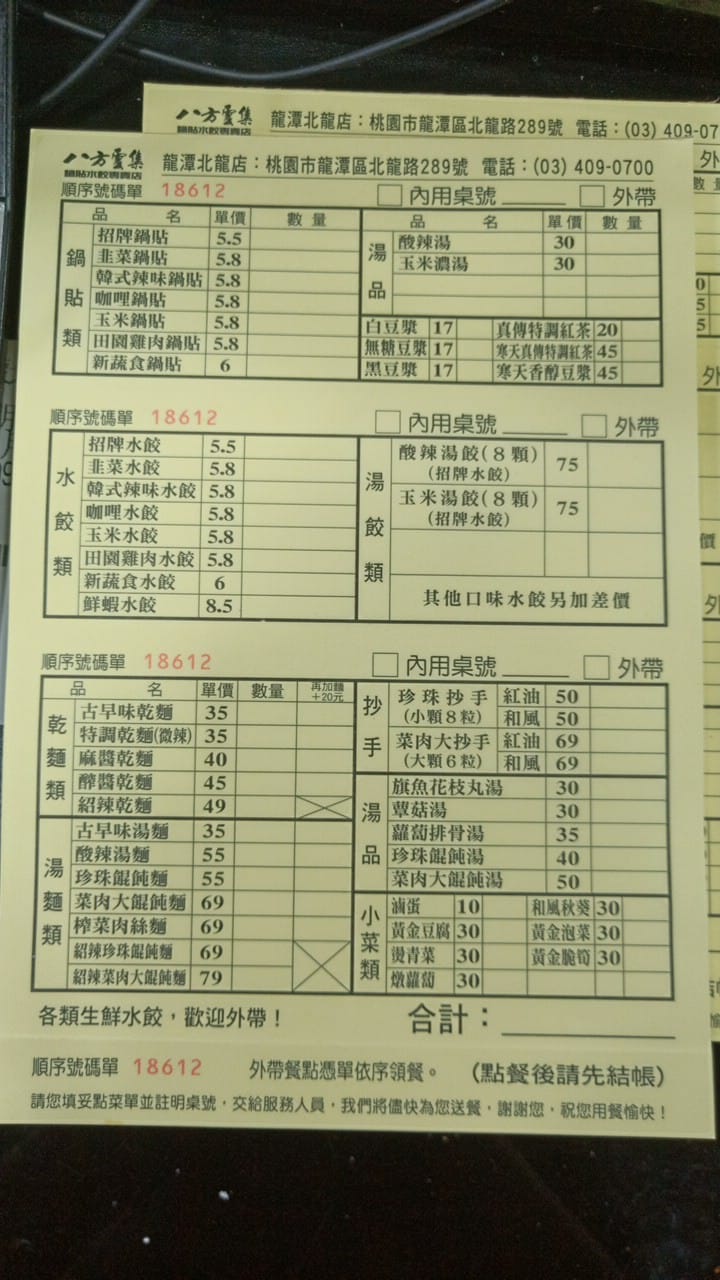 八方雲集 龍潭北龍店：桃園市龍潭區北龍路289號 電話：(03) 409-07
八方雲集 龍潭北龍店：桃園市龍潭區北龍路289號 電話：(03) 409-0700
鍋貼水餃專賣店
順序號碼單 18612 內用桌號 外帶
品名 單價 數量 品名 單價 數量
鍋貼類
招牌鍋貼 5.5
韭菜鍋貼 5.8
韓式辣味鍋貼 5.8
咖哩鍋貼 5.8
玉米鍋貼 5.8
田園雞肉鍋貼 5.8
新蔬食鍋貼 6
湯品
酸辣湯 30
玉米濃湯 30
白豆漿 17 真傳特調紅茶 20
無糖豆漿 17 寒天真傳特調紅茶 45
黑豆漿 17 寒天香醇豆漿 45
順序號碼單 18612 內用桌號 外帶
水餃類
招牌水餃 5.5
韭菜水餃 5.8
韓式辣味水餃 5.8
咖哩水餃 5.8
玉米水餃 5.8
田園雞肉水餃 5.8
新蔬食水餃 6
鮮蝦水餃 8.5
湯餃類
酸辣湯餃(8顆) 75
(招牌水餃)
玉米湯餃(8顆) 75
(招牌水餃)
其他口味水餃另加差價
順序號碼單 18612 內用桌號 外帶
品名 單價 數量 再加麵+20元
乾麵類
古早味乾麵 35
特調乾麵(微辣) 35
麻醬乾麵 40
醡醬乾麵 45
紹辣乾麵 49
湯麵類
古早味湯麵 35
酸辣湯麵 55
珍珠餛飩麵 55
菜肉大餛飩麵 69
榨菜肉絲麵 69
紹辣珍珠餛飩麵 69
紹辣菜肉大餛飩麵 79
抄手
珍珠抄手 紅油 50
(小顆8粒) 和風 50
菜肉大抄手 紅油 69
(大顆6粒) 和風 69
湯品
旗魚花枝丸湯 30
蕈菇湯 30
蘿蔔排骨湯 35
珍珠餛飩湯 40
菜肉大餛飩湯 50
小菜類
滷蛋 10 和風秋葵 30
黃金豆腐 30 黃金泡菜 30
燙青菜 30 黃金脆筍 30
燉蘿蔔 30
各類生鮮水餃，歡迎外帶！ 合計：
順序號碼單 18612 外帶餐點憑單依序領餐。 (點餐後請先結帳)
請您填妥點菜單並註明桌號，交給服務人員，我們將儘快為您送餐，謝謝您，祝您用餐愉快！